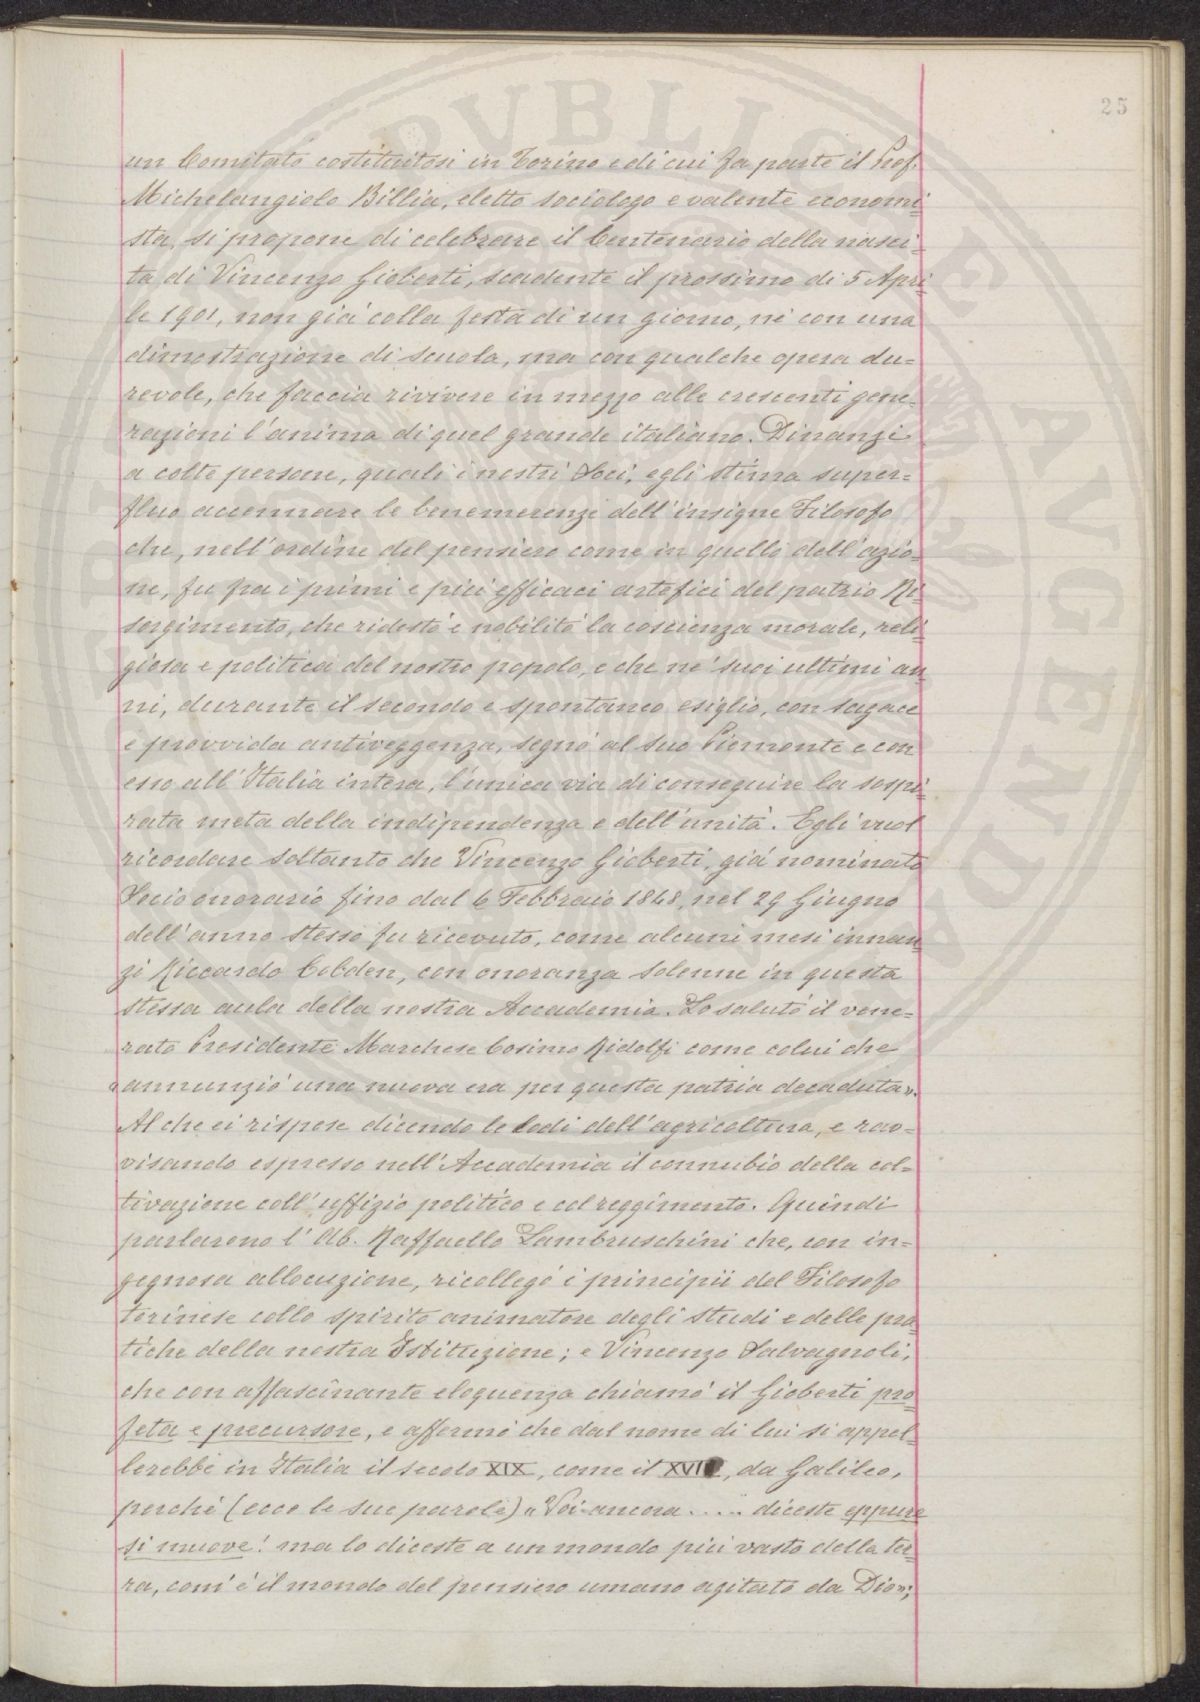 25
un Comitato costituitosi in Torino e di cui fa parte il Prof.
Michelangiolo Billia, eletto sociologo e valente economi-
sta, si propone di celebrare il Centenario della nasci-
ta di Vincenzo Gioberti, scadente il prossimo dì 5 Apri-
le 1901, non già colla festa di un giorno, nè con una
dimostrazione di scuola, ma con qualche opera du=
revole, che faccia rivivere in mezzo alle crescenti gene-
razioni l'anima di quel grande italiano. Dinanzi
a colte persone, quali i nostri Soci, egli stima super=
fluo accennare le benemerenze dell'insigne Filosofo
che, nell'ordine del pensiero come in quello dell'azio-
ne, fu fra i primi e più efficaci artefici del patrio Ri-
sorgimento, che ridestò e nobilitò la coscienza morale, reli-
giosa e politica del nostro popolo, e che ne' suoi ultimi an-
ni, durante il secondo e spontaneo esiglio, con sagace
e provvida antiveggenza, segnò al suo Piemonte e con
esso all'Italia intera, l'unica via di conseguire la sospi-
rata meta della indipendenza e dell'unità. Egli vuol
ricordare soltanto che Vincenzo Gioberti, già nominato
Socio onorario fino dal 6 Febbraio 1848, nel 29 Giugno
dell'anno stesso fu ricevuto, come alcuni mesi innan-
zi Riccardo Cobden, con onoranza solenne in questa
stessa aula della nostra Accademia. Lo salutò il vene=
rato Presidente Marchese Cosimo Ridolfi come colui che
"annunziò una nuova era per questa patria decaduta".
Al che ei rispose dicendo le lodi dell'agricoltura, e rav=
visando espresso nell'Accademia il connubio della col=
tivazione coll'uffizio politico e col reggimento. Quindi
parlarono l'Ab. Raffaello Lambruschini che, con in=
gegnosa allocuzione, ricollegò i principii del Filosofo
torinese collo spirito animatore degli studi e delle pra-
tiche della nostra Istituzione; e Vincenzo Salvagnoli,
che con affascinante eloquenza chiamò il Gioberti pro-
feta e precursore, e affermò che dal nome di lui si appel-
lerebbe in Italia il secolo XIX, come il XVII, da Galileo,
perchè (ecco le sue parole) "Voi ancora ..... diceste eppure
si muove! ma lo diceste a un mondo più vasto della ter-
ra, com'è il mondo del pensiero umano agitato da Dio";
PVBLICAE AVGENDAE